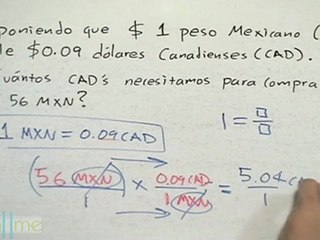 poniendo que $ 1 peso Mexicano (
le $0.09 dólares Canadienses (CAD).
uántos CAD's necesitamos para compra
56 MXN?
1 = □/□
1 MXN = 0.09 CAD
(56 MXN / 1) × (0.09 CAD / 1 MXN) = 5.04 C / 1
me